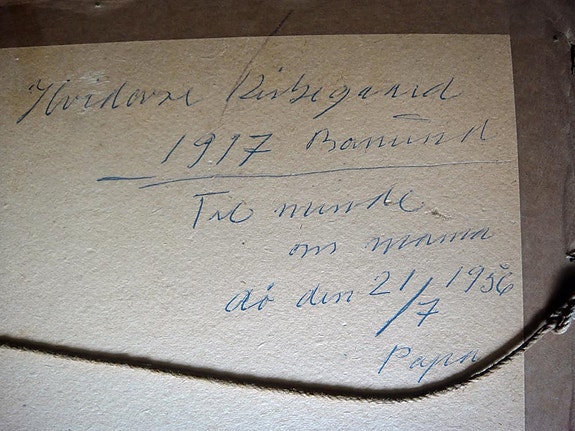 Hvidovre Kirkegaard
1917 Bamund
Til minde
om mama
dö den 21/7 1956
Papa